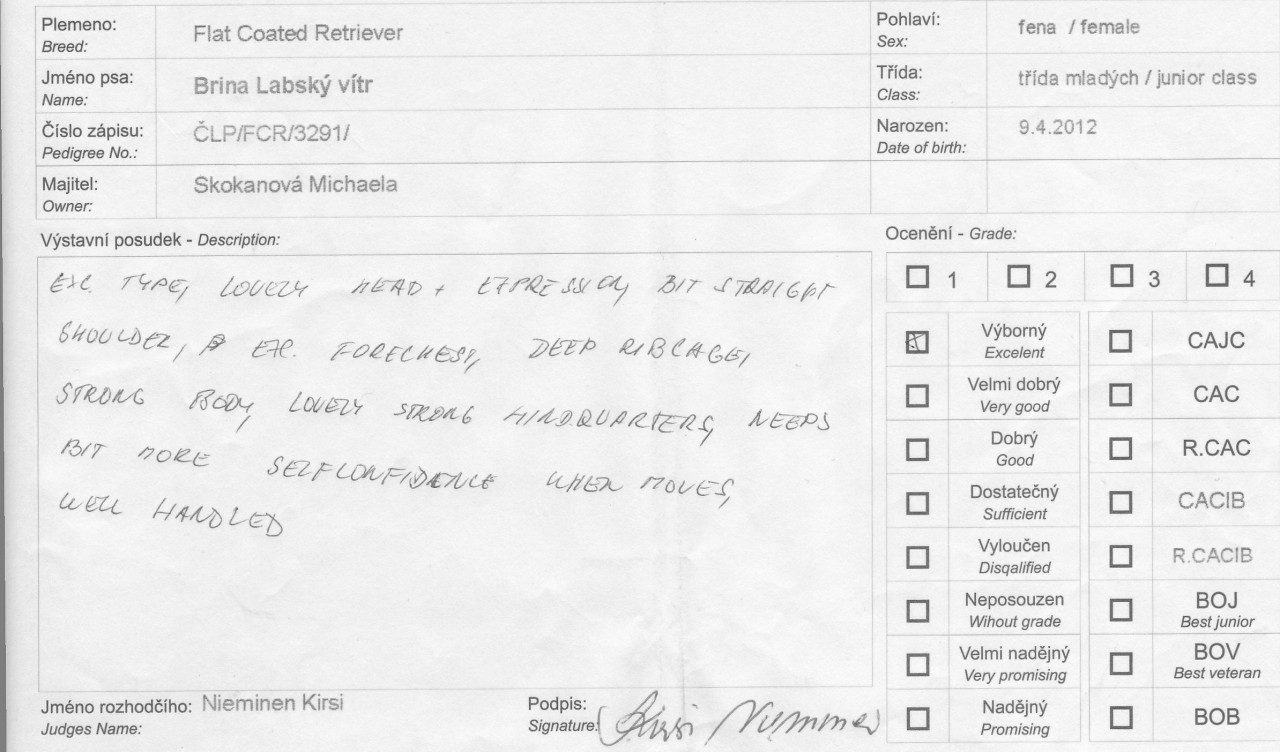 Plemeno: Flat Coated Retriever Pohlaví: fena / female
Breed: Sex:
Jméno psa: Brina Labský vítr Třída: třída mladých / junior class
Name: Class:
Číslo zápisu: ČLP/FCR/3291/ Narozen: 9.4.2012
Pedigree No.: Date of birth:
Majitel: Skokanová Michaela
Owner:
Výstavní posudek - Description:
EXC. TYPE, LOVELY HEAD + EXPRESSION, BIT STRAIGHT
SHOULDER, EXC. FORECHEST, DEEP RIBCAGE,
STRONG BODY, LOVELY STRONG HINDQUARTERS, NEEDS
BIT MORE SELFCONFIDENCE WHEN MOVES,
WELL HANDLED
Ocenění - Grade:
1 2 3 4
Výborný CAJC
Excelent
Velmi dobrý CAC
Very good
Dobrý R.CAC
Good
Dostatečný CACIB
Sufficient
Vyloučen R.CACIB
Disqalified
Neposouzen BOJ
Wihout grade Best junior
Velmi nadějný BOV
Very promising Best veteran
Nadějný BOB
Promising
Jméno rozhodčího: Nieminen Kirsi Podpis:
Judges Name: Signature: Kirsi Nieminen